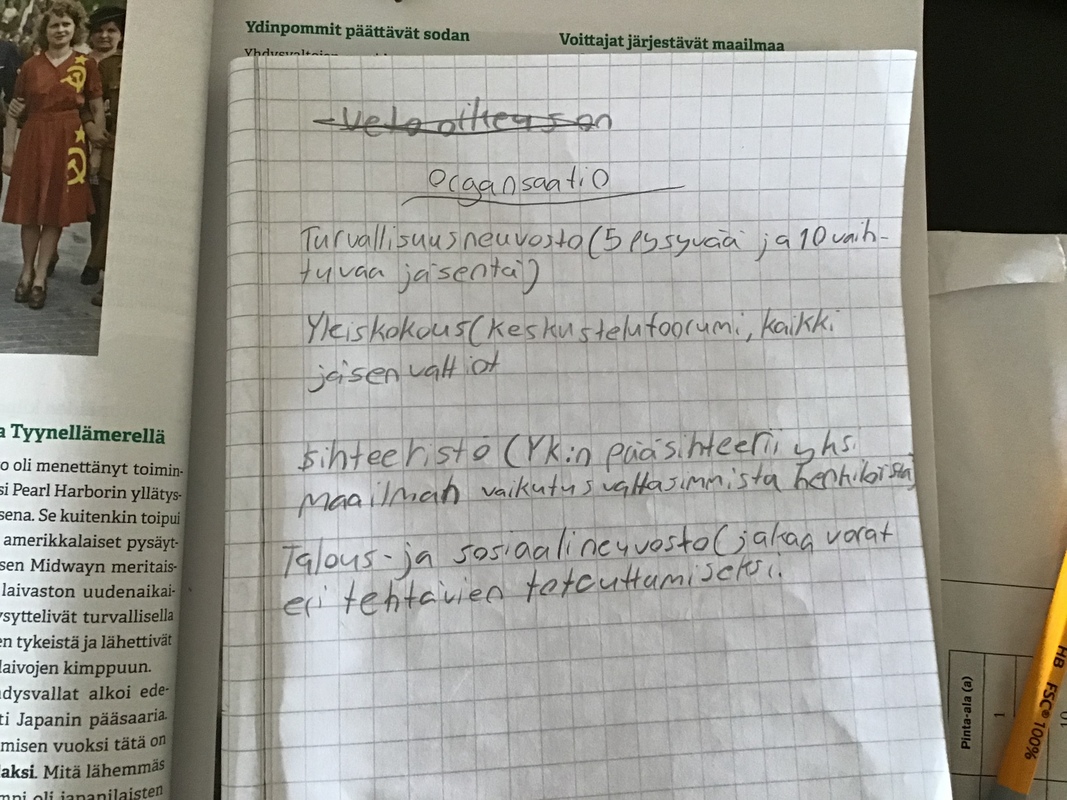 Ydinpommit päättävät sodan
Voittajat järjestävät maailmaa
Yhdysvaltojen
-Veto oikeus on
Organsaatio
Turvallisuusneuvosto (5 pysyvää ja 10 vaih-
tuvaa jäsentä)
Yleiskokous (keskustelufoorumi, kaikki
jäsenvaltiot
Sihteeristö (YK:n pääsihteeri yksi
maailman vaikutusvaltasimmista henkilöistä)
Talous- ja sosiaalineuvosto (jakaa varat
eri tehtävien toteuttamiseksi.
a Tyynellämerellä
o oli menettänyt toimin-
si Pearl Harborin yllätys-
sena. Se kuitenkin toipui
amerikkalaiset pysäyt-
sen Midwayn meritais-
laivaston uudenaikai-
ysyttelivät turvallisella
en tykeistä ja lähettivät
laivojen kimppuun.
hdysvallat alkoi ede-
ti Japanin pääsaaria.
misen vuoksi tätä on
laksi. Mitä lähemmäs
mpi oli japanilaisten
Pinta-ala (a)
1
10
HB FSC® 100%